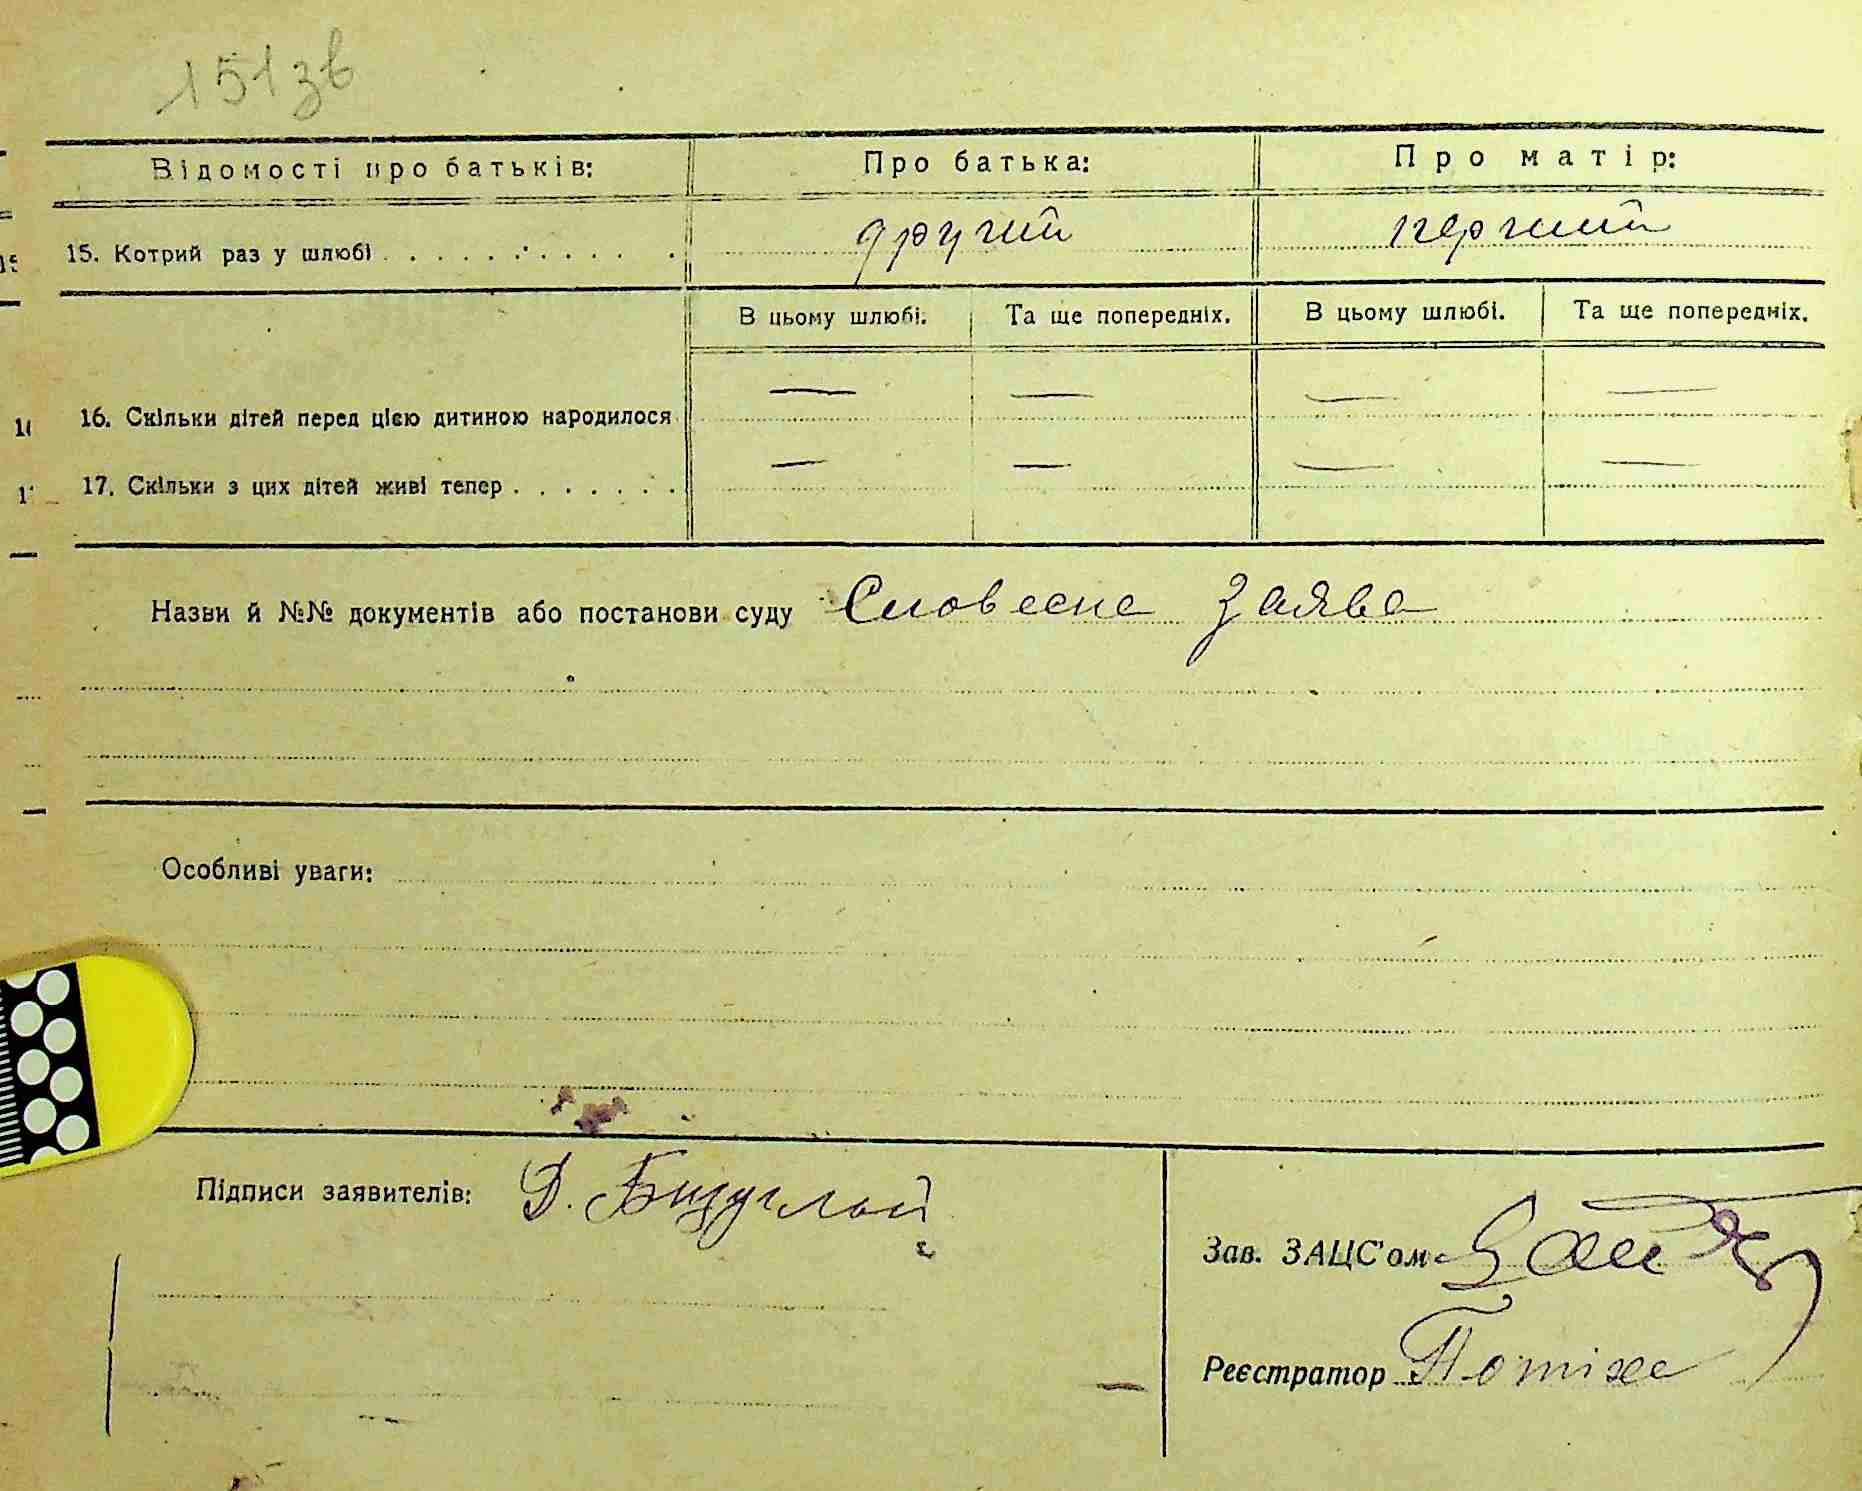 151зв
Відомості про батьків: Про батька: Про матір:
15. Котрий раз у шлюбі другий перший
В цьому шлюбі. Та ще попередніх. В цьому шлюбі. Та ще попередніх.
16. Скільки дітей перед цією дитиною народилося — — — —
17. Скільки з цих дітей живі тепер — — — —
Назви й №№ документів або постанови суду Словесна заява
Особливі уваги:
Підписи заявителів: Д.
Зав. ЗАЦС'ом
Реєстратор Потіха